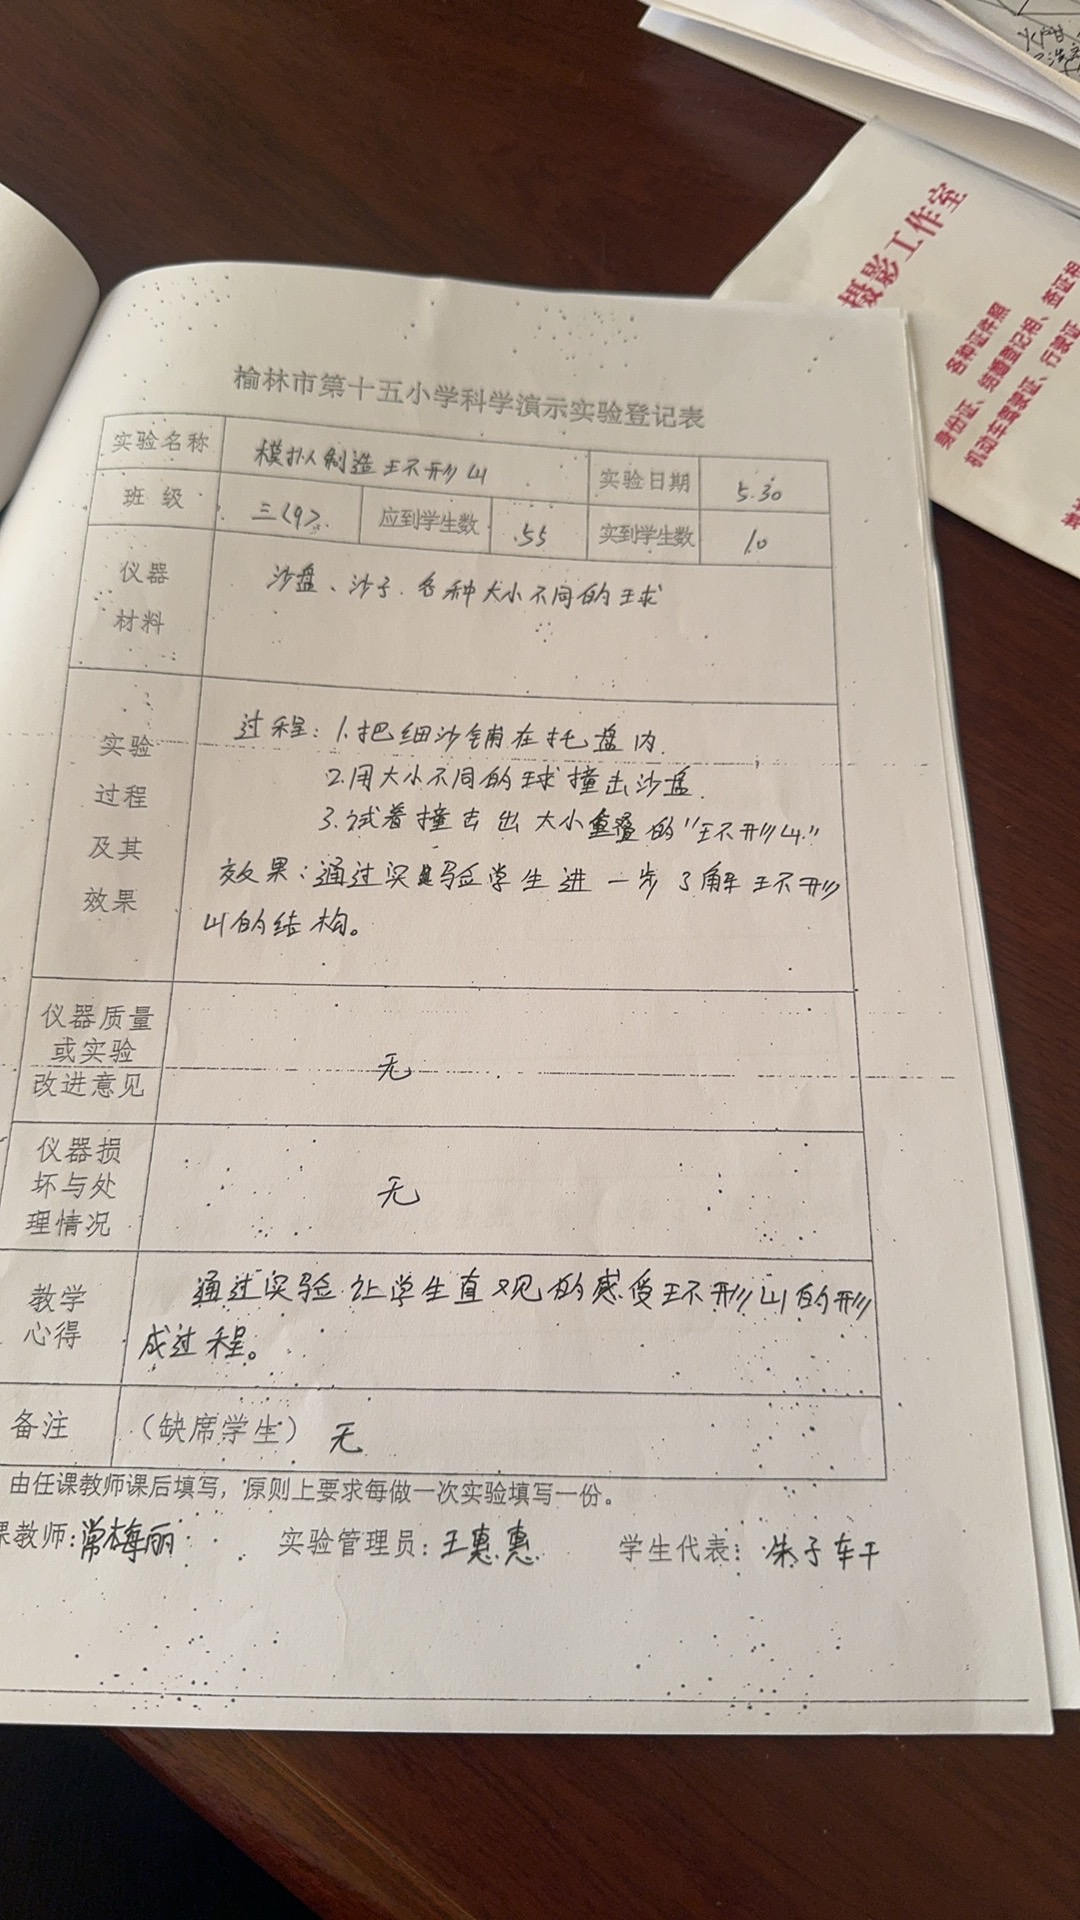 摄影工作室
各种证件照
身份证、结婚登记相、签证相
机动车驾驶证、行驶证
榆林市第十五小学科学演示实验登记表
实验名称 模拟制造环形山 实验日期 5.30
班级 三(9). 应到学生数 55 实到学生数 10
仪器材料 沙盘、沙子.各种大小不同的球
实验过程及其效果
过程:1.把细沙铺在托盘内.
2.用大小不同的球撞击沙盘.
3.试着撞击出大小重叠的“环形山.”
效果:通过实验学生进一步了解环形
山的结构。
仪器质量或实验改进意见 无
仪器损坏与处理情况 无
教学心得 通过实验让学生直观的感受环形山的形
成过程。
备注 (缺席学生) 无
由任课教师课后填写，原则上要求每做一次实验填写一份。
课教师:常梅丽 实验管理员:王惠惠 学生代表:朱子轩